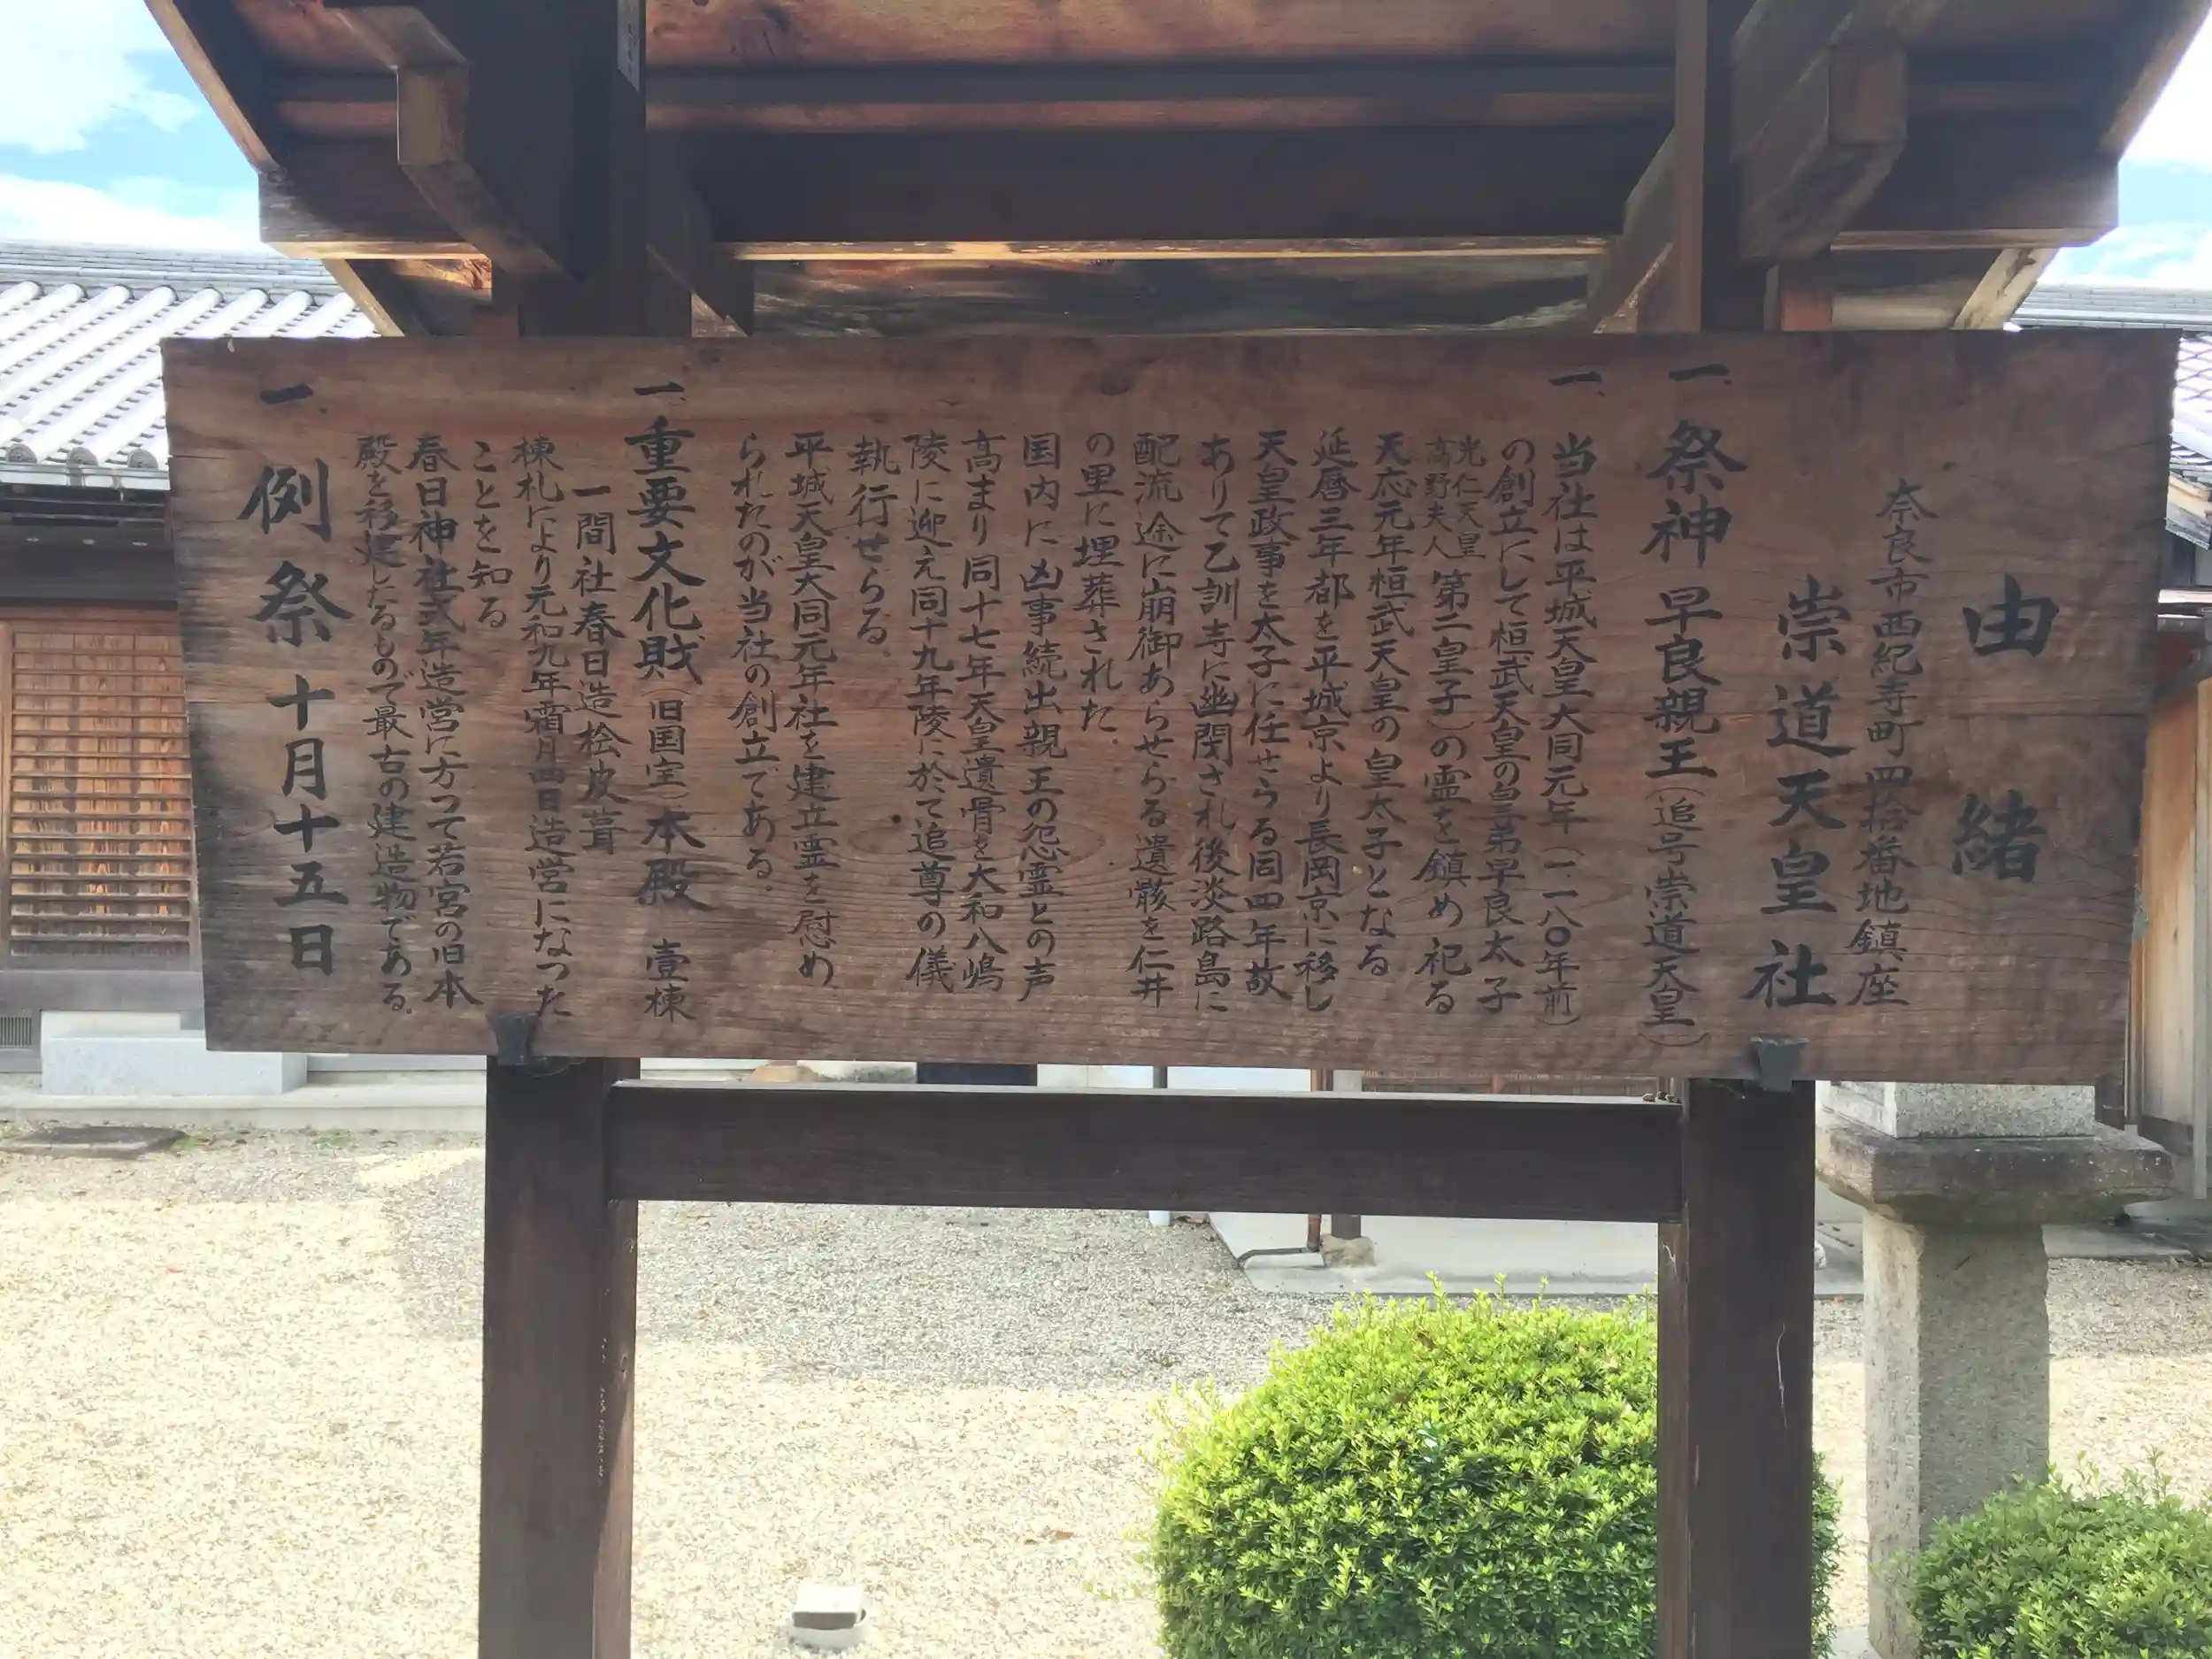 由緒
奈良市西紀寺町四拾番地鎮座
崇道天皇社
一、祭神 早良親王（追号崇道天皇）
一、当社は平城天皇大同元年（一一八〇年前）
の創立にして桓武天皇の皇弟早良太子
光仁天皇
高野夫人 第二皇子）の霊を鎮め祀る
天応元年桓武天皇の皇太子となる
延暦三年都を平城京より長岡京に移し
天皇政事を太子に任せらる同四年故
ありて乙訓寺に幽閉され後淡路島に
配流途に崩御あらせらる遺骸を仁井
の里に埋葬された。
国内に凶事続出親王の怨霊との声
高まり同十七年天皇遺骨を大和八嶋
陵に迎え同十九年陵に於て追尊の儀
執行せらる。
平城天皇大同元年社を建立霊を慰め
られたのが当社の創立である。
一、重要文化財（旧国宝）本殿 壹棟
一間社春日造桧皮葺
棟札により元和九年霜月四日造営になつた
ことを知る
春日神社式年造営に方つて若宮の旧本
殿を移建したるもので最古の建造物である。
一、例祭 十月十五日